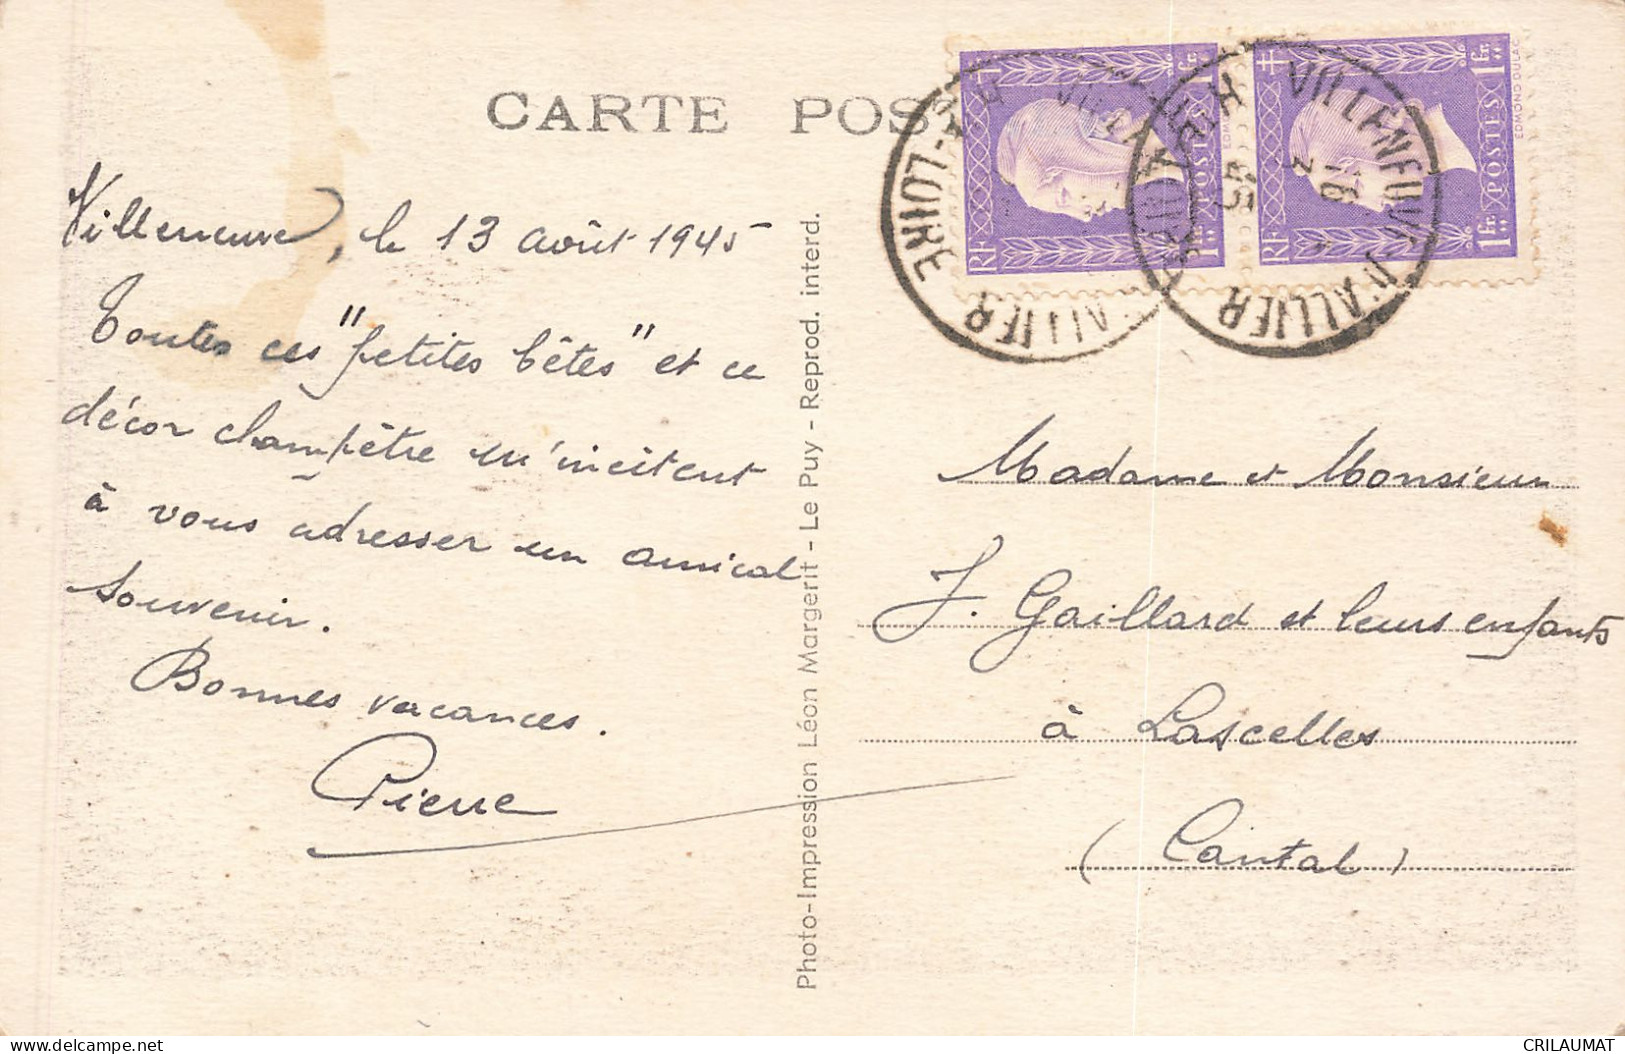 CARTE POS
Villeneuve, le 13 août 1945
Toutes ces "petites bêtes" et ce
décor champêtre m'incitent
à vous adresser un amical
souvenir.
Bonnes vacances.
Pierre
Photo-Impression Léon Margerit - Le Puy - Reprod. interd.
RF
1fr.
POSTES
1fr.
EDMOND DULAC
RF
1fr.
POSTES
1fr.
LOIRE
D'ALLIER
Madame et Monsieur
J. Gaillard et leurs enfants
à Lascelles
(Cantal)
CRILAUMAT